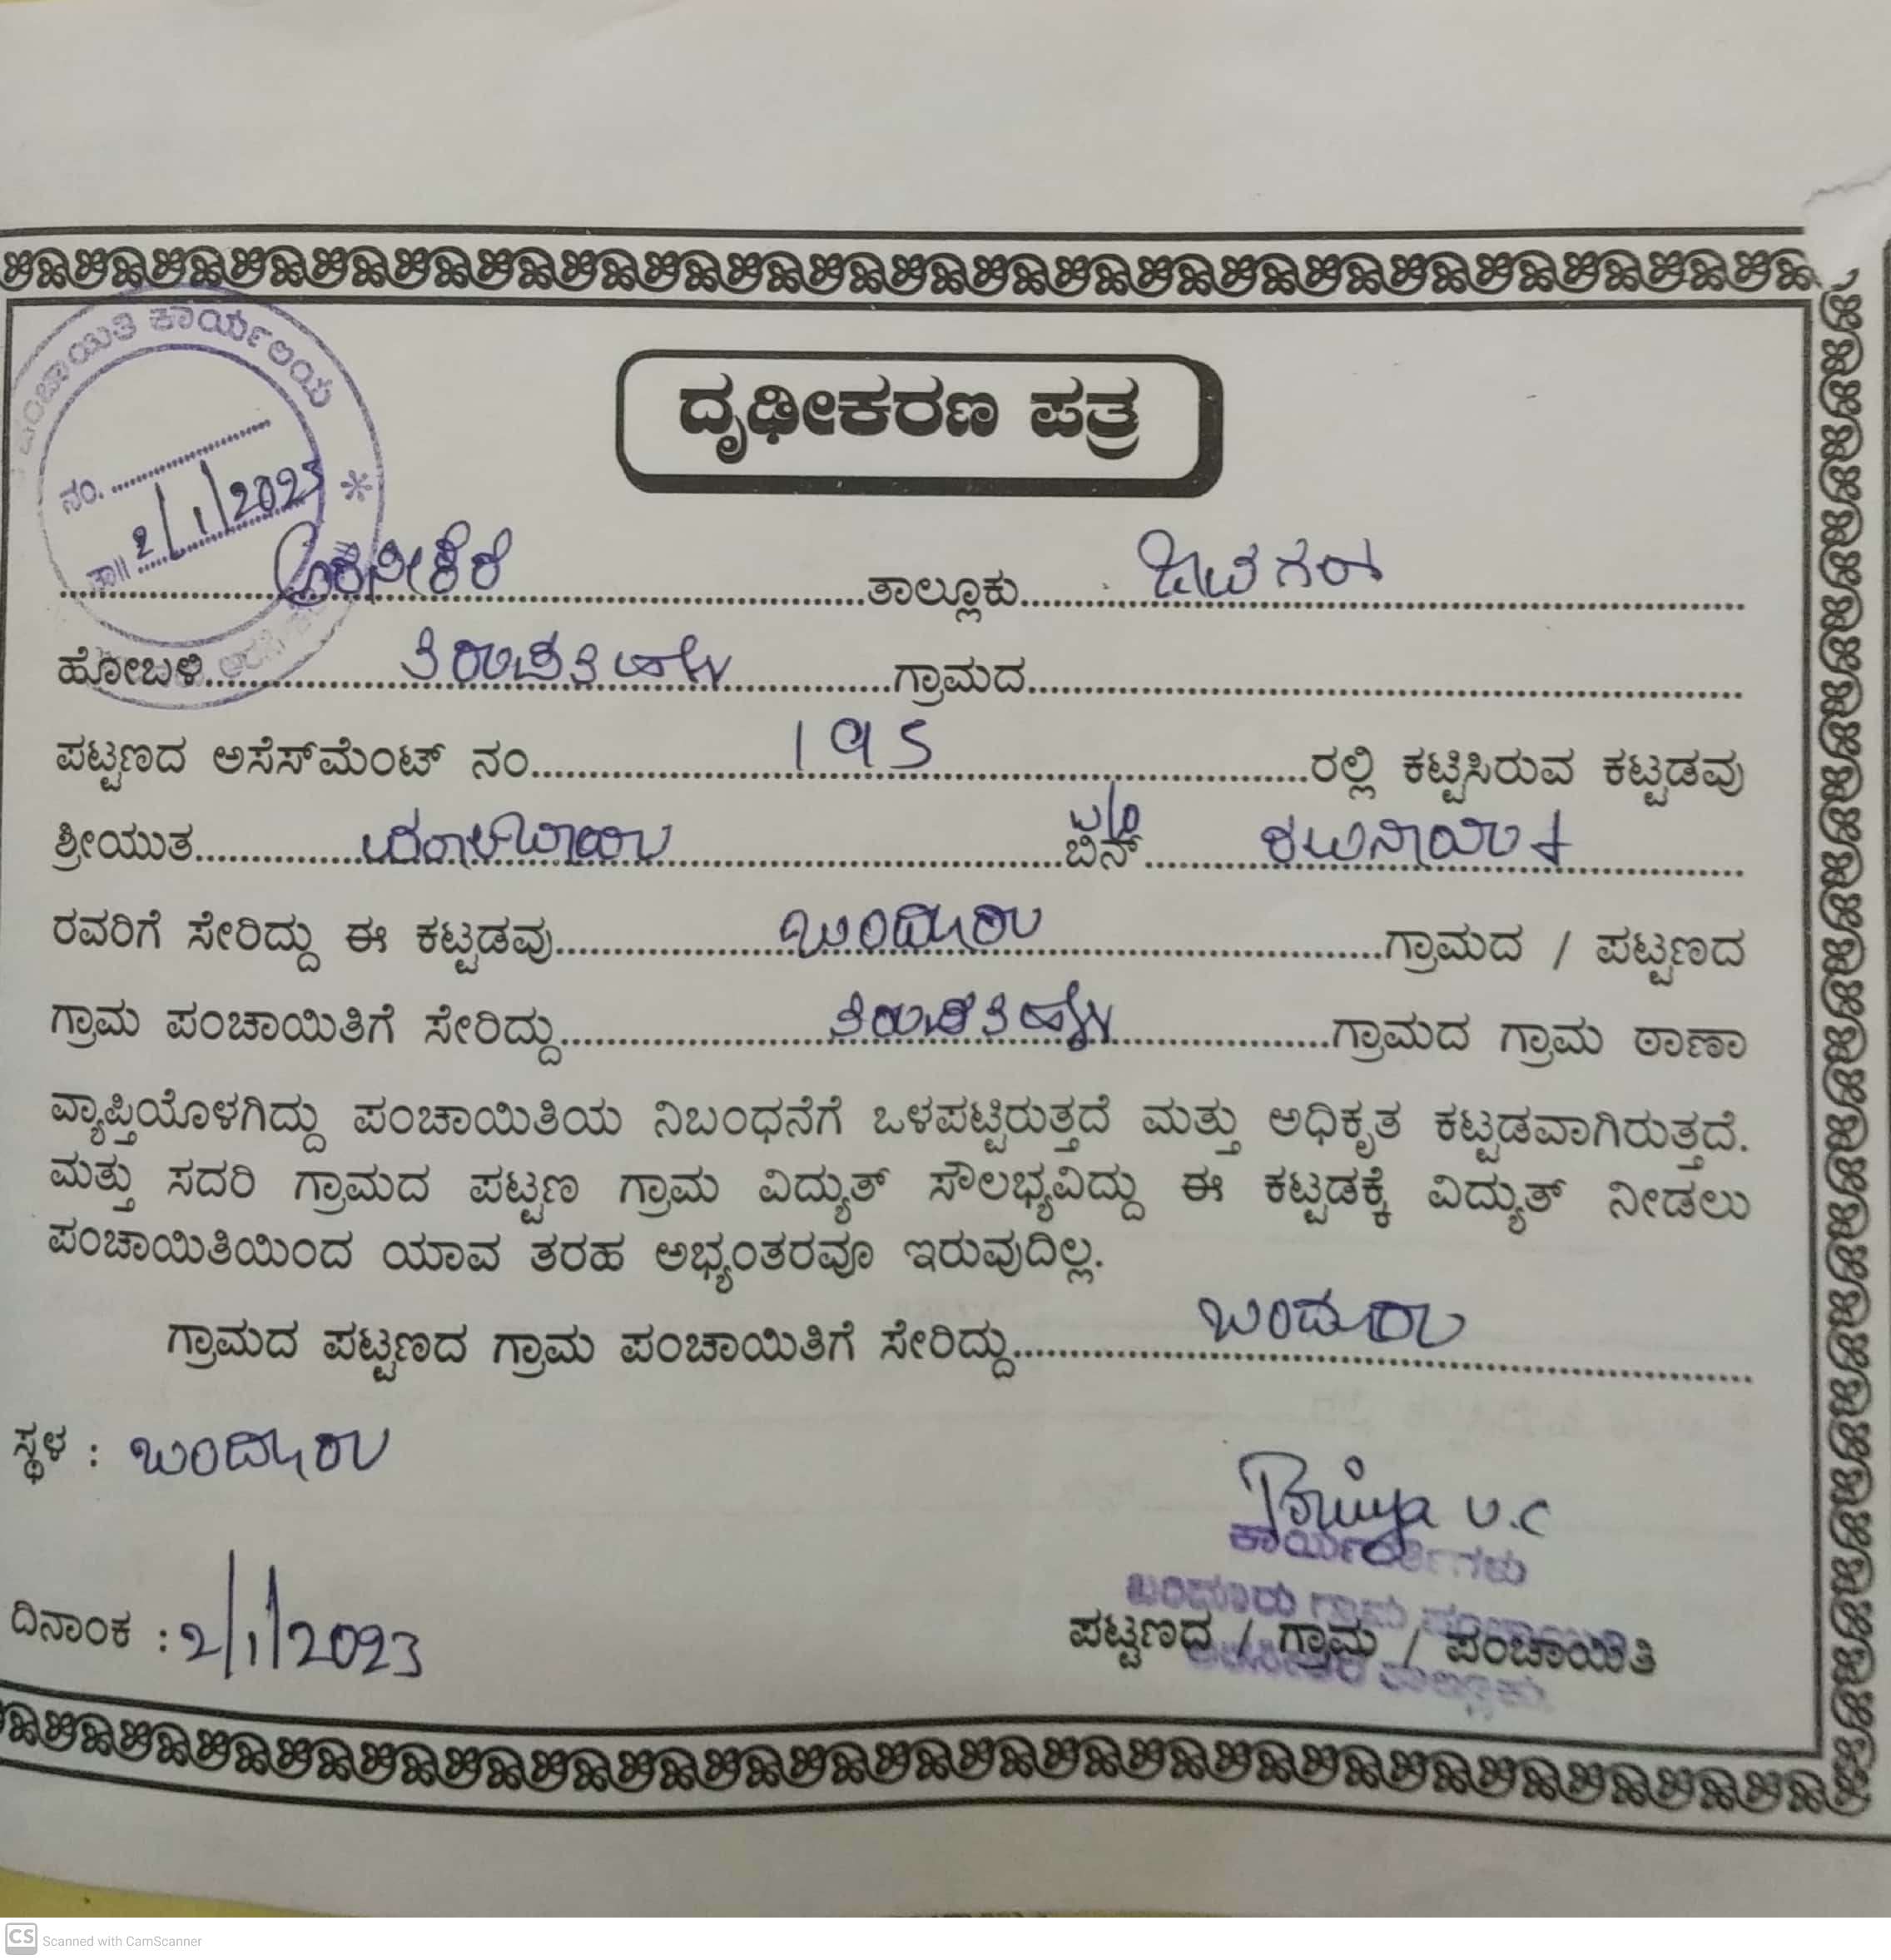 ಪಂಚಾಯಿತಿ ಕಾರ್ಯಲಯ
ದೃಢೀಕರಣ ಪತ್ರ
ನಂ.
ತಾ॥ 2/1/2023
ಅರಸೀಕೆರೆ ತಾಲ್ಲೂಕು
ಹೋಬಳಿ ತಿರುಪತಿಹಳ್ಳಿ ಗ್ರಾಮದ
ಪಟ್ಟಣದ ಅಸೆಸ್‌ಮೆಂಟ್ ನಂ. 195 ರಲ್ಲಿ ಕಟ್ಟಿಸಿರುವ ಕಟ್ಟಡವು
ಶ್ರೀಯುತ ಬಿನ್ w/o
ರವರಿಗೆ ಸೇರಿದ್ದು ಈ ಕಟ್ಟಡವು ಬಂದೂರು ಗ್ರಾಮದ / ಪಟ್ಟಣದ
ಗ್ರಾಮ ಪಂಚಾಯಿತಿಗೆ ಸೇರಿದ್ದು ತಿರುಪತಿಹಳ್ಳಿ ಗ್ರಾಮದ ಗ್ರಾಮ ಠಾಣಾ
ವ್ಯಾಪ್ತಿಯೊಳಗಿದ್ದು ಪಂಚಾಯಿತಿಯ ನಿಬಂಧನೆಗೆ ಒಳಪಟ್ಟಿರುತ್ತದೆ ಮತ್ತು ಅಧಿಕೃತ ಕಟ್ಟಡವಾಗಿರುತ್ತದೆ.
ಮತ್ತು ಸದರಿ ಗ್ರಾಮದ ಪಟ್ಟಣ ಗ್ರಾಮ ವಿದ್ಯುತ್ ಸೌಲಭ್ಯವಿದ್ದು ಈ ಕಟ್ಟಡಕ್ಕೆ ವಿದ್ಯುತ್ ನೀಡಲು
ಪಂಚಾಯಿತಿಯಿಂದ ಯಾವ ತರಹ ಅಭ್ಯಂತರವೂ ಇರುವುದಿಲ್ಲ.
ಗ್ರಾಮದ ಪಟ್ಟಣದ ಗ್ರಾಮ ಪಂಚಾಯಿತಿಗೆ ಸೇರಿದ್ದು ಬಂದೂರು
ಸ್ಥಳ : ಬಂದೂರು
Priya U.C
ಬಂದೂರು ಗ್ರಾಮ ಪಂಚಾಯಿತಿ
ದಿನಾಂಕ : 2/1/2023
ಪಟ್ಟಣದ / ಗ್ರಾಮ / ಪಂಚಾಯಿತಿ
ಅರಸೀಕೆರೆ ತಾಲ್ಲೂಕು
CS Scanned with CamScanner